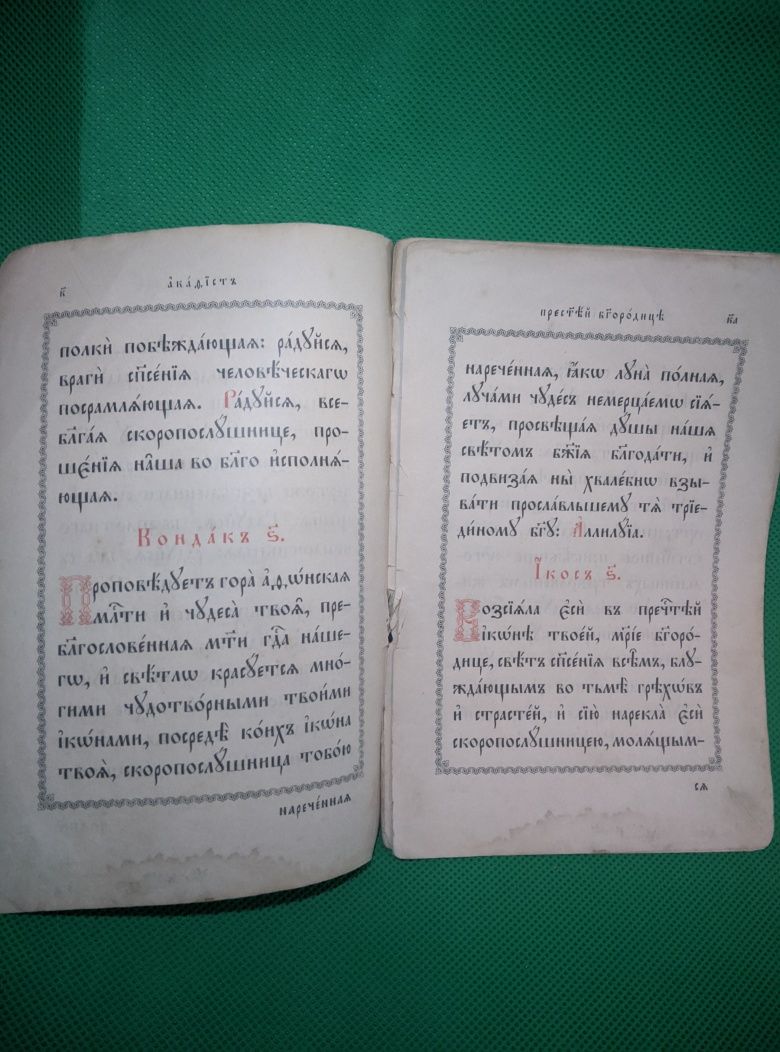 к҃
а҆ка́ѳїстъ
полкѝ побѣжда́ющая: ра́дꙋйсѧ,
врагѝ сп҃се́нїѧ человѣ́ческагѡ
посрамлѧ́ющая. Ра́дꙋйсѧ, все-
бл҃га́ѧ скоропослꙋ́шнице, про-
ше́нїѧ на̑ша во бл҃го и҆сполнѧ́-
ющая.
Конда́къ ѕ҃.
Проповѣ́дꙋетъ гора̀ а҆ѳѡ́нская
мл҃ти и҆ чꙋдеса̀ твоѧ̑, пре-
бл҃гослове́нная мт҃и гдⷭ҇а на́ше-
гѡ, и҆ свѣ́тлѡ красꙋ́етсѧ мно́-
гими чꙋдотво́рными твои́ми
і҆кѡ́нами, посредѣ̀ ко́ихъ і҆кѡ́на
твоѧ̀, скоропослꙋ́шница тобо́ю
нарече́нная
прест҃ѣ́й бг҃оро́дицѣ
к҃а
нарече́нная, ꙗ҆́кѡ лꙋна̀ по́лная,
лꙋча́ми чꙋде́съ немерца́емѡ сїѧ́-
етъ, просвѣща́ѧ дꙋ́шы на́шѧ
свѣ́томъ бж҃їѧ бл҃года́ти, и҆
подвиза́ѧ ны̀ хвале́бнѡ взы-
ва́ти просла́вльшемꙋ тѧ̀ трїе-
ди́номꙋ бг҃ꙋ: А҆ллилꙋ́їа.
І҆́косъ ѕ҃.
Возсїѧ́ла є҆сѝ въ пречⷭ҇тѣй
і҆кѡ́нѣ твое́й, мр҃і́е бг҃оро́-
дице, свѣ́тъ сп҃се́нїѧ всѣ̑мъ, блꙋ-
жда́ющымъ во тьмѣ̀ грѣхѡ́въ
и҆ страсте́й, и҆ сїю̀ нарекла̀ є҆сѝ
скоропослꙋ́шницею, молѧ́щым-
сѧ